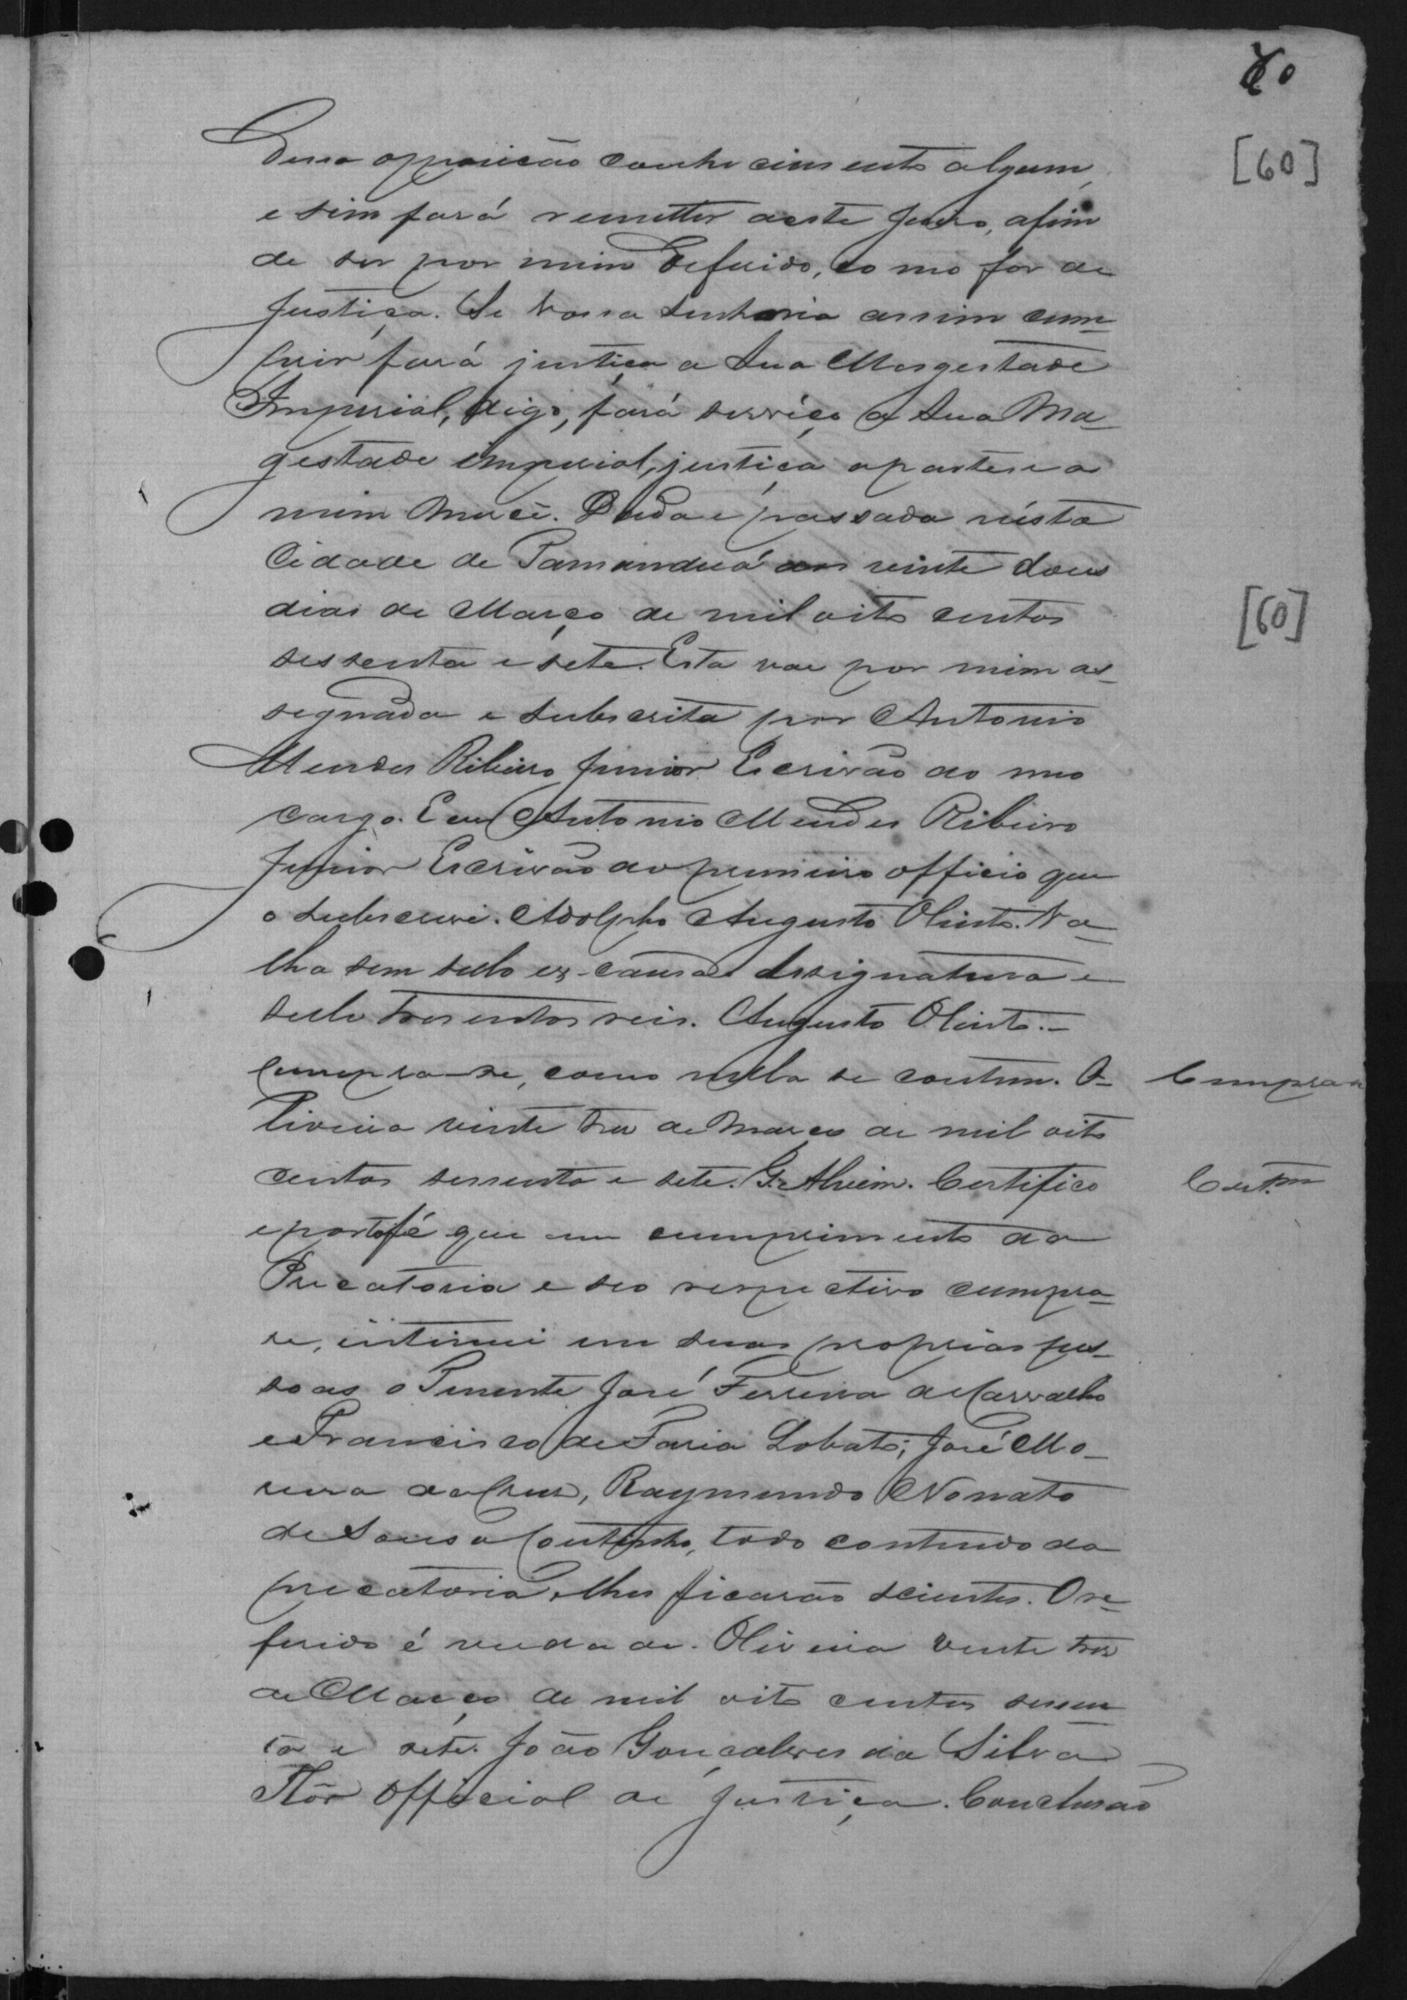 60
[60]
Dessa opposição conhecimento algum,
e sim fará remetter aeste Juizo, afim
de ser por mim Defirido, como for de
Justiça. Se Vossa Senhoria assim cum-
prir fará justiça a Sua Magestade
Imperial, digo, fará serviço a Sua Ma-
gestade imperial, justiça apartes e a
mim Mercê. Dada e passada nésta
Cidade de Tamanduá aos vinte dous
dias de Março de mil oito centos
sessenta e sete. Esta vae por mim as-
[60]
segnada e subscrita por Antonio
Mendes Ribeiro Junior Escrivão do meo
cargo. E eu Antonio Mendes Ribeiro
Junior Escrivão do primeiro officio que
o subscrevi. Adolpho Augusto Olinto. Va-
lha sem sello ex-causa. Assignatura e
sello tresentos reis. Augusto Olinto.-
Cumpra-se, como nella se contem. O-
Cumpra-se
liveira vinte tres de Março de mil oito
centos sessenta e sete. G. Alvim. Certifico
Cert.am
e portofé que em cumprimento da
Precatoria e seo respectivo cumpra-
se, intimei em suas proprias pes-
soas o Tenente José Ferreira de Carvalho
e Francisco de Faria Lobato; José Mo-
reira da Cruz, Raymundo Nonato
de Sousa Coutinho, todo contheudo da
precatoria, elhes ficarão scientes. O re-
ferido é verdade. Oliveira vinte tres
de Março de mil oito centos sessen
ta e sete. João Gonçalves da Silva
Flôr Official de Justiça. Conclusão